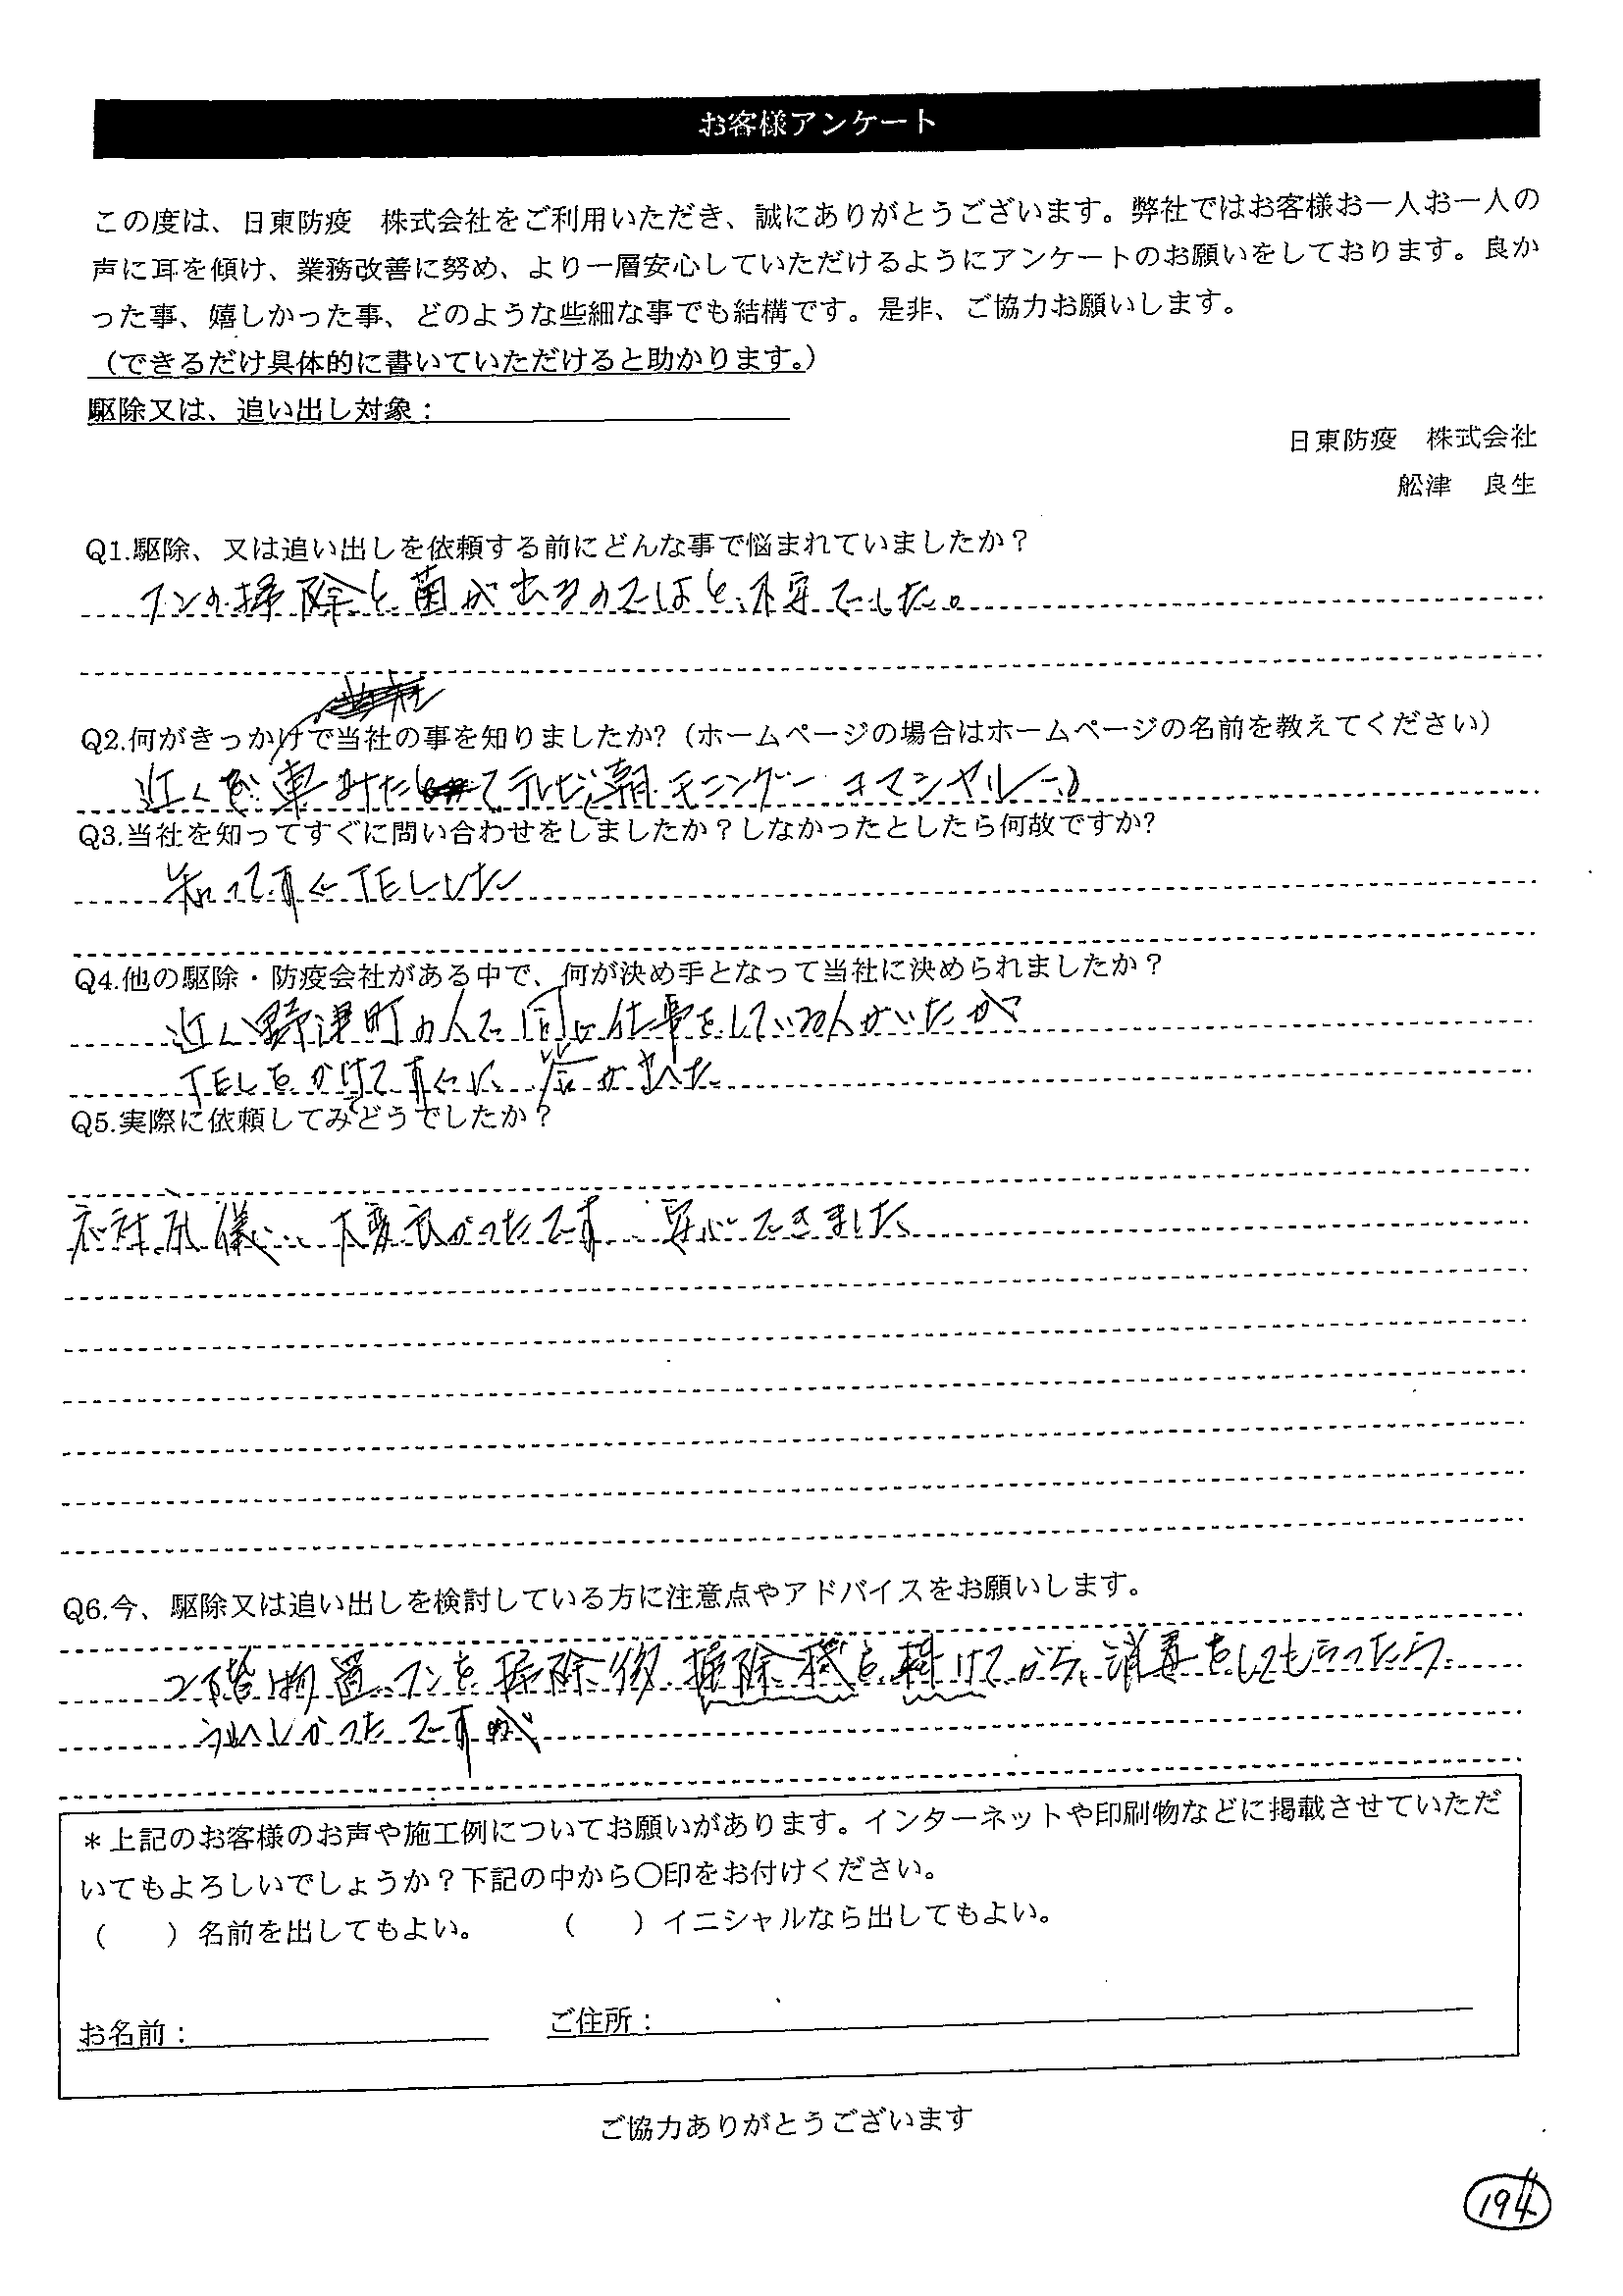 お客様アンケート
この度は、日東防疫　株式会社をご利用いただき、誠にありがとうございます。弊社ではお客様お一人お一人の
声に耳を傾け、業務改善に努め、より一層安心していただけるようにアンケートのお願いをしております。良か
った事、嬉しかった事、どのような些細な事でも結構です。是非、ご協力お願いします。
（できるだけ具体的に書いていただけると助かります。）
駆除又は、追い出し対象：
日東防疫　株式会社
舩津　良生
Q1.駆除、又は追い出しを依頼する前にどんな事で悩まれていましたか？
フンの掃除と菌が出るのではと不安でした。
Q2.何がきっかけで当社の事を知りましたか?（ホームページの場合はホームページの名前を教えてください）
近くで車みた テレビ朝モニング コマシャル
Q3.当社を知ってすぐに問い合わせをしましたか？しなかったとしたら何故ですか?
知って直ぐTELした
Q4.他の駆除・防疫会社がある中で、何が決め手となって当社に決められましたか？
近く野津町の人で同じ仕事をしている人がいたが
TELをかけて直ぐに
Q5.実際に依頼してみどうでしたか？
大変良かったです 安心できました
Q6.今、駆除又は追い出しを検討している方に注意点やアドバイスをお願いします。
2階物置フンを掃除後、掃除機を掛けてから、消毒をしてもらったら
うれしかったですが
＊上記のお客様のお声や施工例についてお願いがあります。インターネットや印刷物などに掲載させていただ
いてもよろしいでしょうか？下記の中から〇印をお付けください。
（　　）名前を出してもよい。　　（　　）イニシャルなら出してもよい。
お名前：　　ご住所：
ご協力ありがとうございます
194